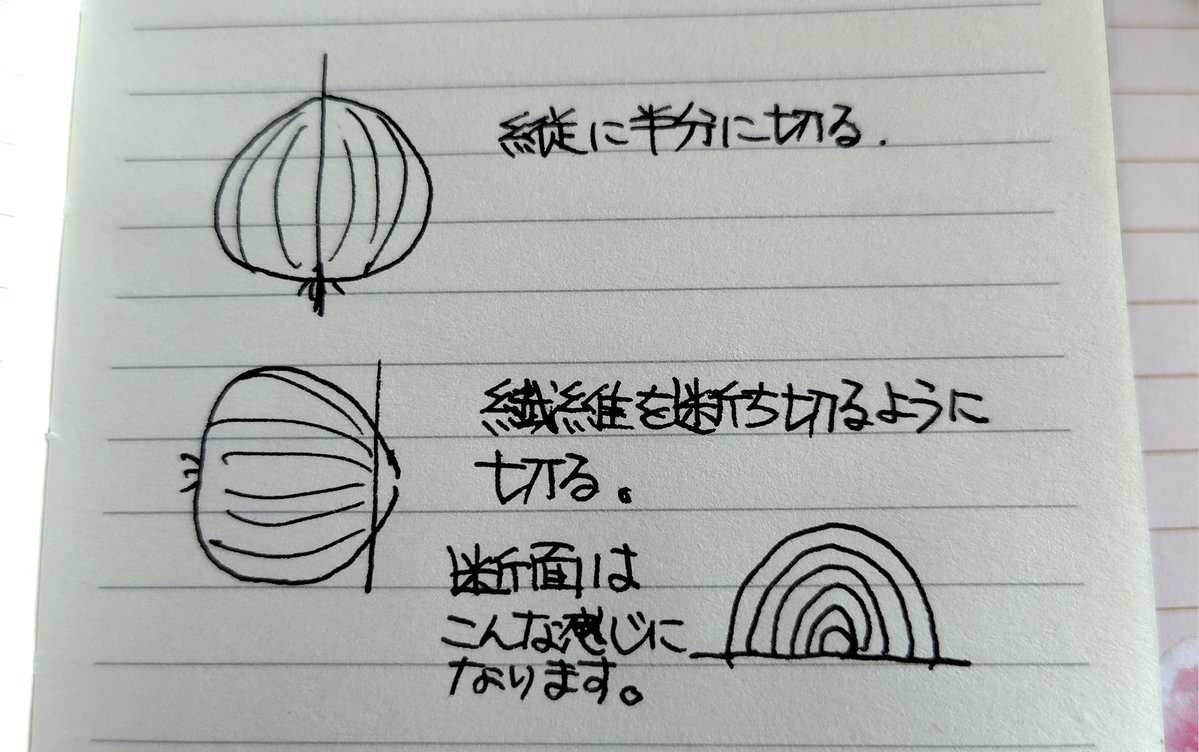 縦に半分に切る.
繊維を断ち切るように
切る。
断面は
こんな感じに
なります。